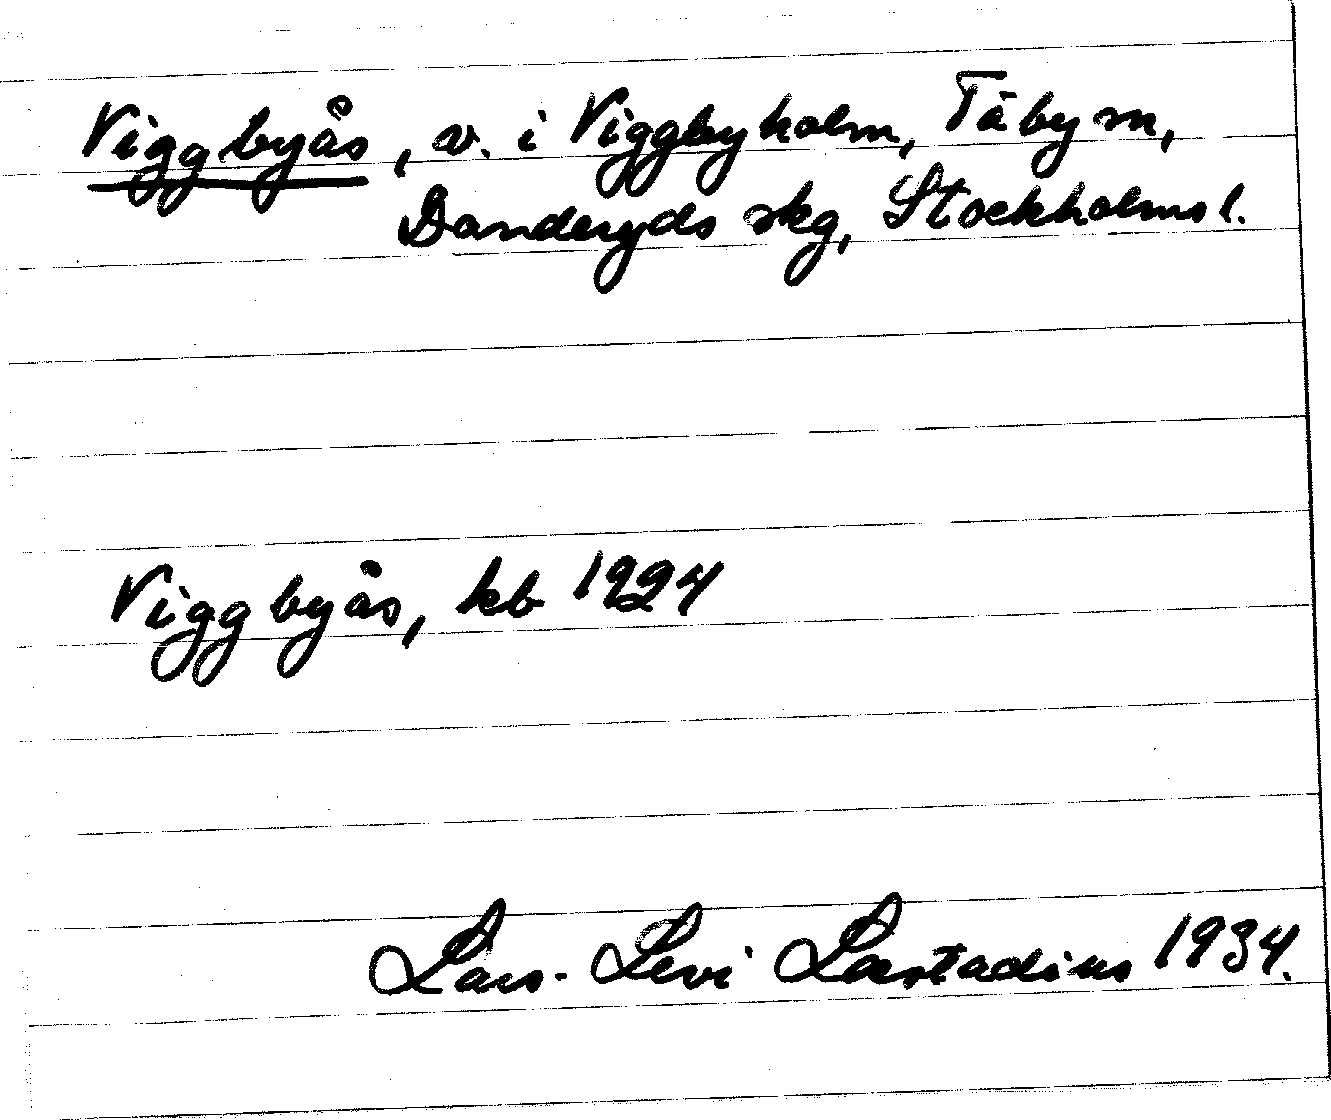 Viggbyås, v. i Viggbyholm, Täby sn,
Danderyds skg, Stockholms l.
Viggbyås, kb 1924
Lars-Levi Læstadius 1934.